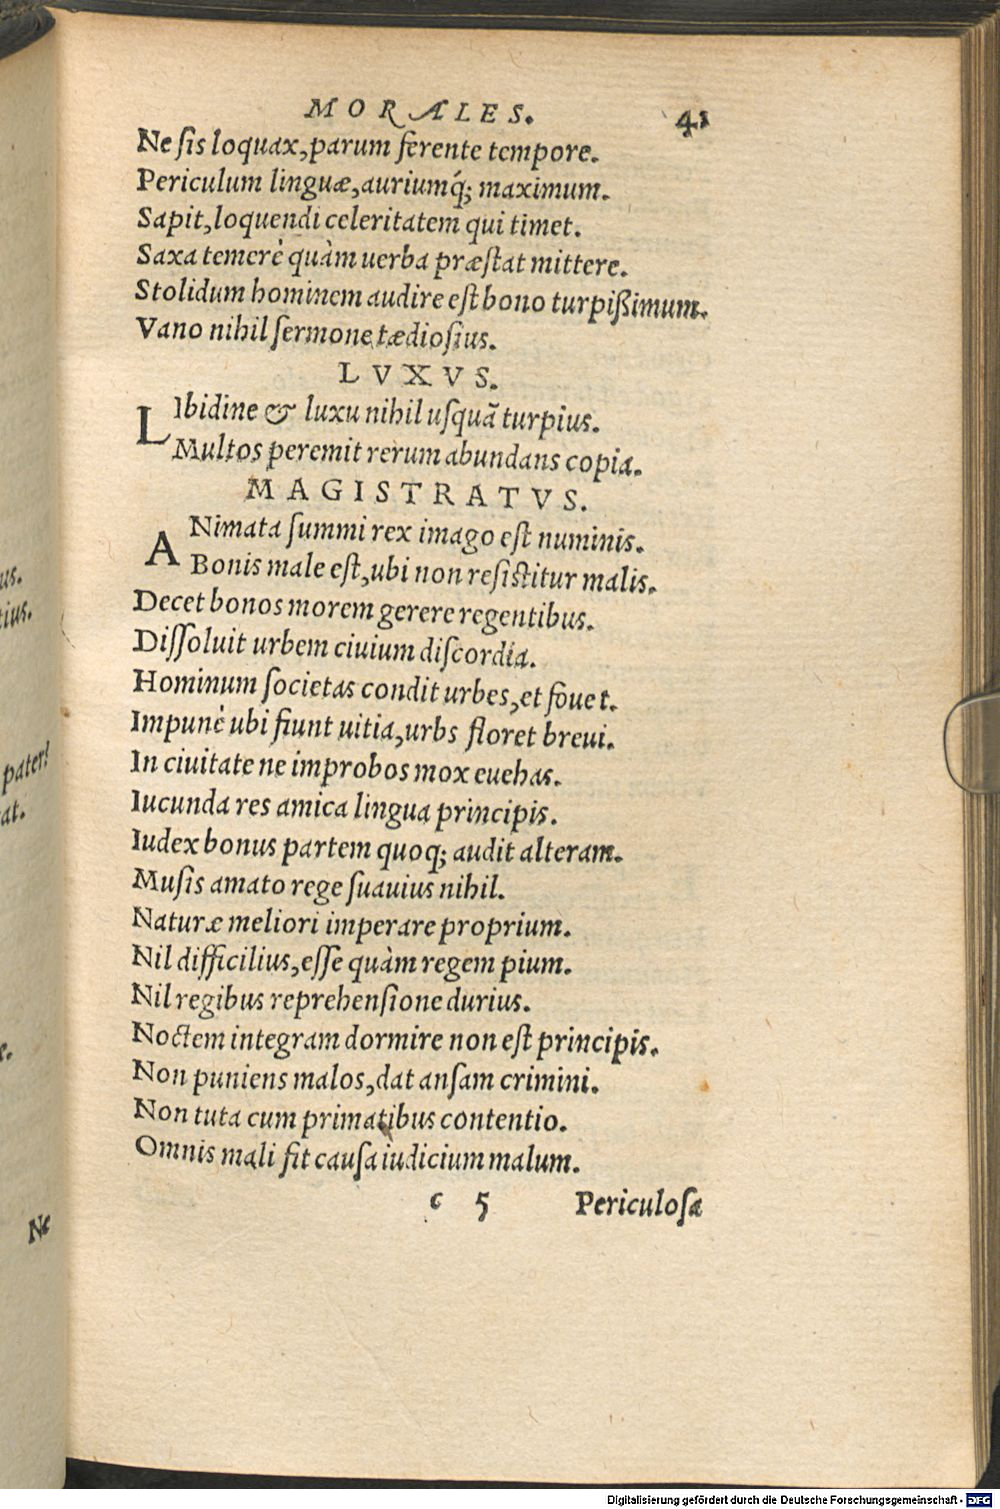 MORALES. 41
Ne ſis loquax, parum ferente tempore.
Periculum linguæ, auriumq́; maximum.
Sapit, loquendi celeritatem qui timet.
Saxa temerè quàm uerba præſtat mittere.
Stolidum hominem audire eſt bono turpißimum.
Vano nihil ſermone tædioſius.
LVXVS.
LIbidine & luxu nihil uſquã turpius.
Multos peremit rerum abundans copia.
MAGISTRATVS.
ANimata ſummi rex imago eſt numinis.
Bonis male eſt, ubi non reſiſtitur malis.
Decet bonos morem gerere regentibus.
Diſſoluit urbem ciuium diſcordia.
Hominum ſocietas condit urbes, et fouet.
Impunè ubi fiunt uitia, urbs floret breui.
In ciuitate ne improbos mox euehas.
Iucunda res amica lingua principis.
Iudex bonus partem quoq; audit alteram.
Muſis amato rege ſuauius nihil.
Naturæ meliori imperare proprium.
Nil difficilius, eſſe quàm regem pium.
Nil regibus reprehenſione durius.
Noctem integram dormire non eſt principis.
Non puniens malos, dat anſam crimini.
Non tuta cum primatibus contentio.
Omnis mali fit cauſa iudicium malum.
c 5 Periculoſa
us.
tius.
pater!
at.
Ne
Digitalisierung gefördert durch die Deutsche Forschungsgemeinschaft - DFG